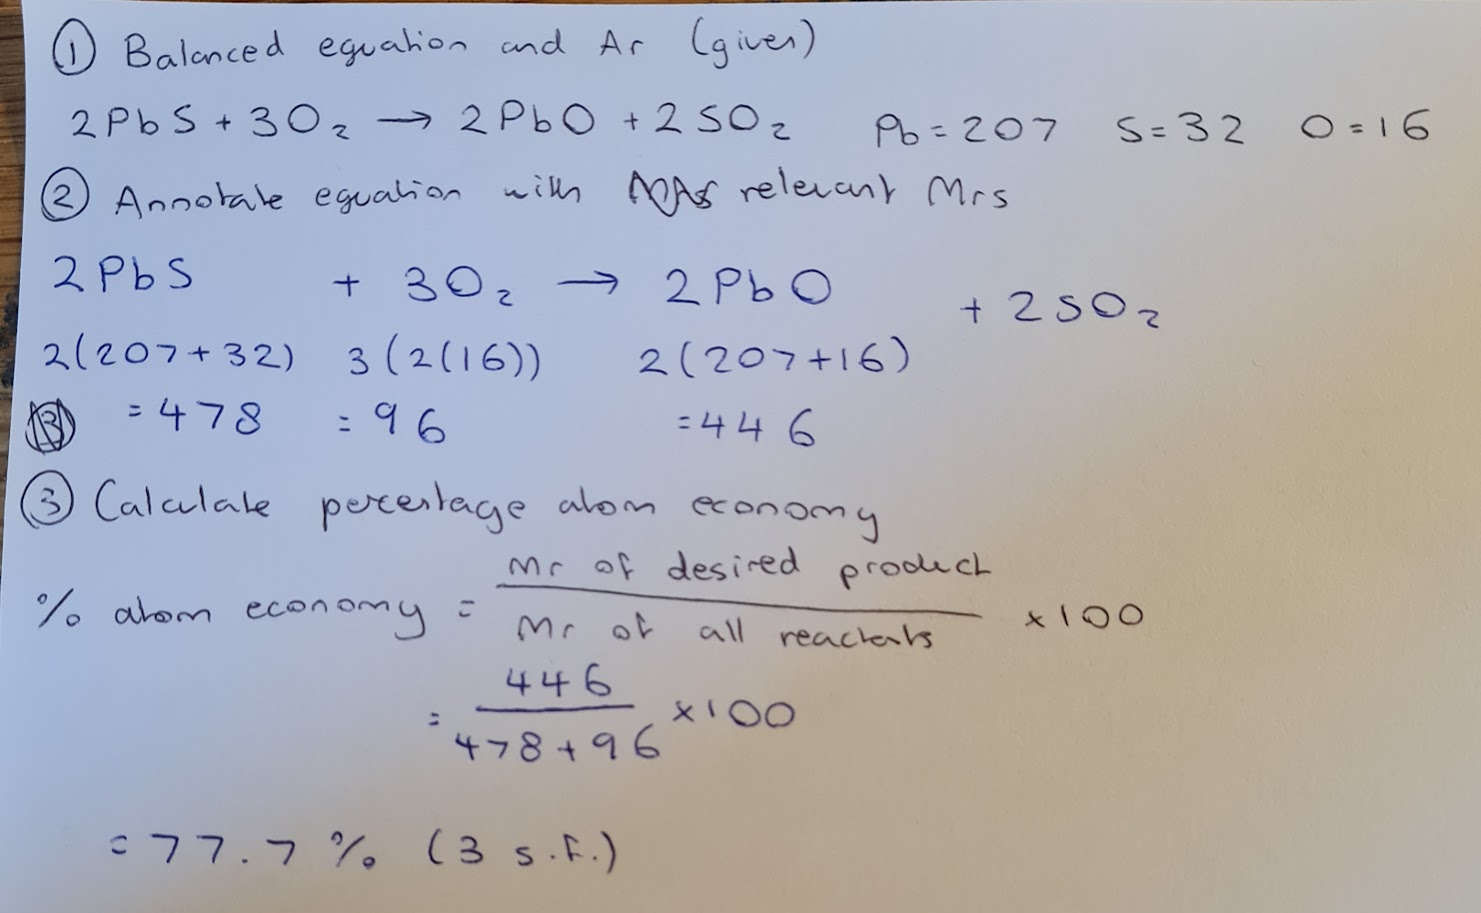 ① Balanced equation and Ar (given)
2PbS + 3O₂ → 2PbO + 2SO₂ Pb = 207 S = 32 O = 16
② Annotate equation with relevant Mrs
2PbS + 3O₂ → 2PbO + 2SO₂
2(207+32) 3(2(16)) 2(207+16)
= 478 = 96 = 446
③ Calculate percentage atom economy
Mr of desired product
% atom economy = × 100
Mr of all reactants
446
= × 100
478 + 96
= 77.7 % (3 s.f.)